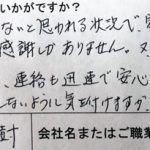 いかがですか?
ないと思われる状況で、
感謝しかありません。又、
、連絡も迅速で安心
しないように気を付けますが、
樹
会社名またはご職業